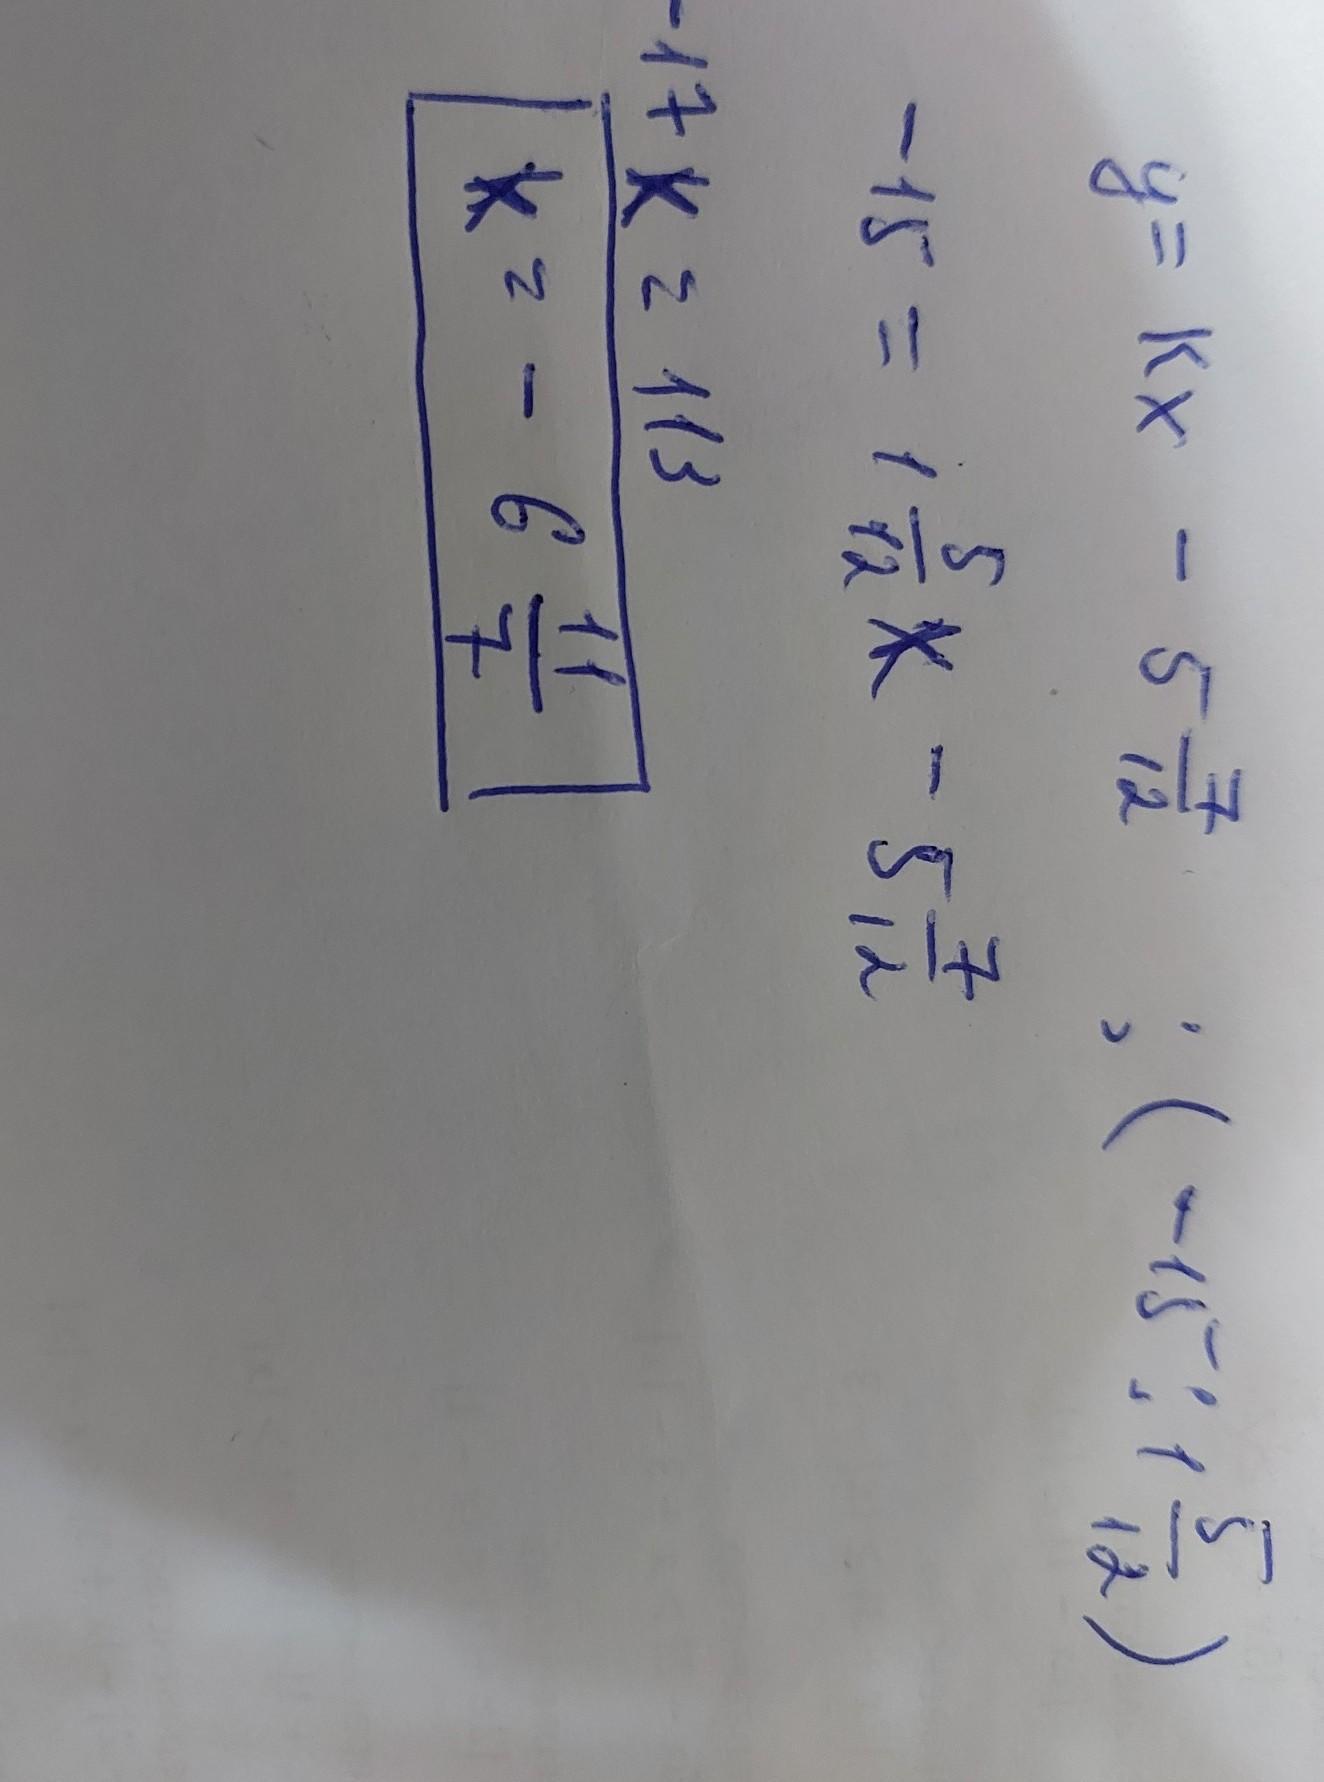 y = kx - 5 7/12 ; (-15 ; 1 5/12)
-15 = 1 5/12 k - 5 7/12
-17k = 113
k = - 6 11/7